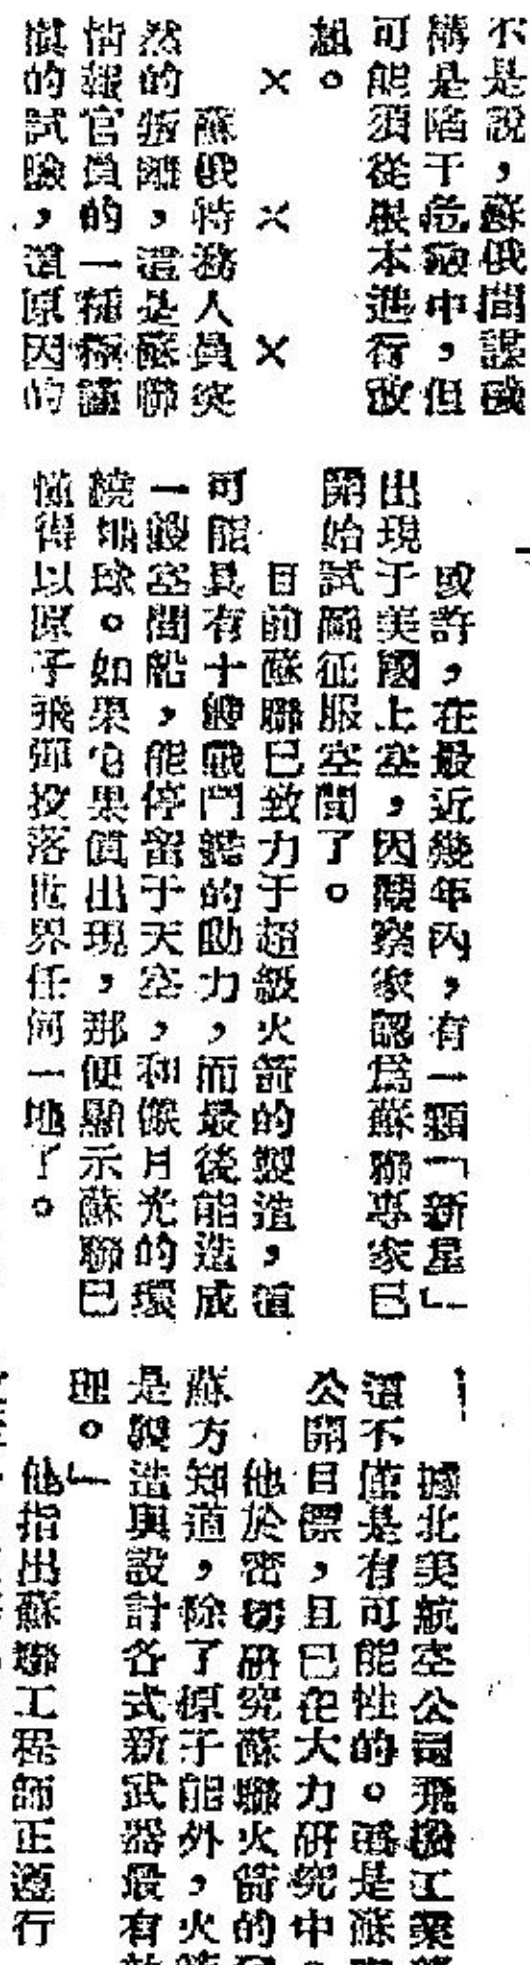 不是說，蘇俄間諜
構是陷于危險中，但
可能須從根本進行改
組。
×　×　×
蘇俄特務人員突
然的叛離，這是蘇聯
情報官員的一種極
的試驗，這原因的
或許，在最近幾年內，有一顆「新星」
出現于美國上空，因觀察家認爲蘇聯專家已
開始試圖征服空間了。
目前蘇聯已致力于超級火箭的製造，這
可能具有十艘戰鬥艦的助力，而最後能造成
一艘空間船，能停留于天空，和像月光的環
繞地球。如果它果真出現，那便顯示蘇聯已
懂得以原子飛彈投落世界任何一地了。
據北美航空公司飛機工業
這不僅是有可能性的。這是蘇
公開目標，且已在大力研究中。
他於密切研究蘇聯火箭的
蘇方知道，除了原子能外，火箭
是製造與設計各式新武器最有
理。」
他指出蘇聯工程師正進行